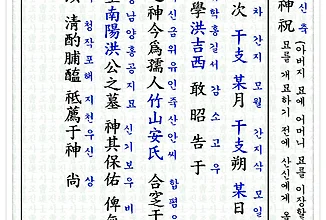 신 축
神 祝
(아버지 묘에 어머니 묘를 이장할
묘를 개묘하기 전에 산신에게 올
차 간지 모월 간지삭 모일
次 干支 某月 干支朔 某日
학홍길서 감 소 고 우
學 洪吉西 敢 昭 告 于
신금위유인죽산안씨 합폄
之神今爲孺人竹山安氏 合窆于
남양홍공지묘 신기보우 비
南陽洪公之墓 神其保佑 俾
청작포해 지천우신 상
淸酌脯醢 祗薦于神 尚